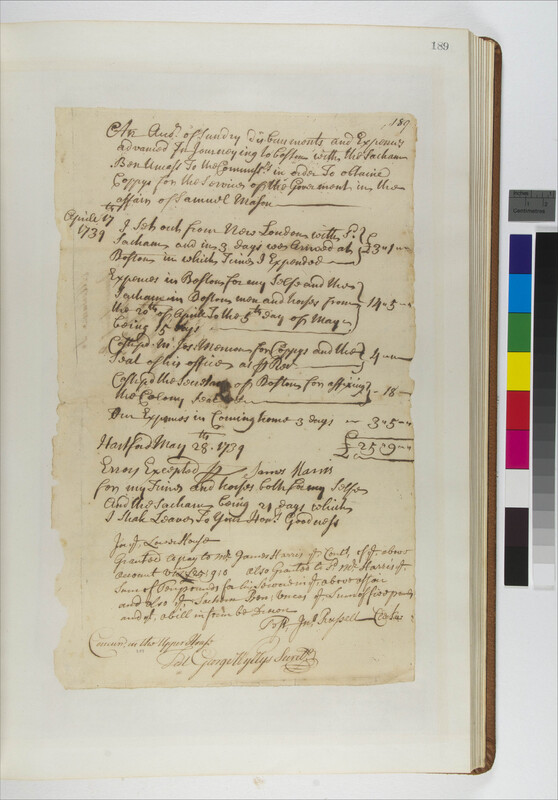 189
189
An Accot. of Sundry disbursments and Expences
advanced In Journeying to boston with the Sacham
Ben Uncass To the Commissrs. in order To obtaine
Coppys for the Service of the Goverment in the
affair of Samuel Mason
Aprill 17th
1739
I set out from New London with Sd.
Sacham and in 3 days we Arrived at
Boston in which Time I Expended £3 " 1 "
Expences in Boston for my Selfe and the
Sacham in Boston men and horses from
the 20th of Aprill To the 5th day of May
being 15 days 14 " 5 "
Costs pd. Mr. for Coppys and the
Seal of his office as pr. 4
Costs pd the Secretary of Boston for affixing
the Colony Seal " 18 "
Our Expences in Coming home 3 days 3 " 5 "
£25 " 9 "
Hartford May 28th. 1739
Errors Excepted pr James Harris
for my Time and horses both for my Selfe
And the Sacham being 21 days which
I Shall Leave To Your Honrs Goodness
In ye Lower House
Granted a pay to Mr. James Harris ye of ye above
account also Granted to Sd. Mr. Harris ye
Sum of pounds for his Service in ye above affair
and also
and yt. a bill in form be drawn
Test. Jno. Russell Clerk
Concurd in the Upper House
Test George Wyllys Secrety.